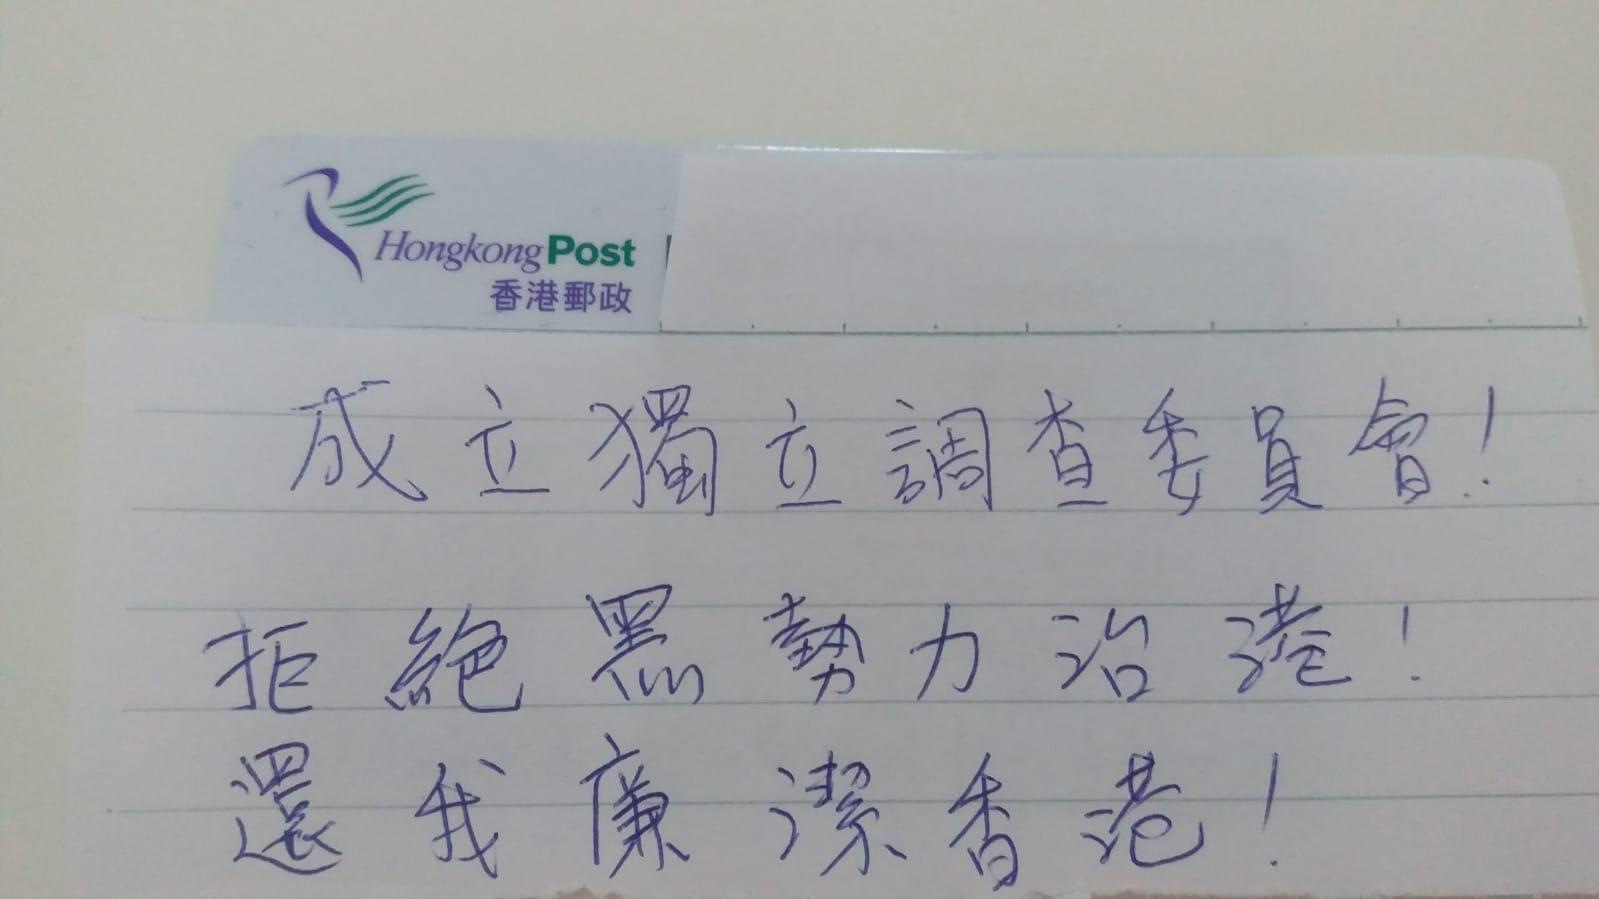 Hongkong Post
香港郵政
成立獨立調查委員會!
拒絕黑勢力治港!
還我廉潔香港!